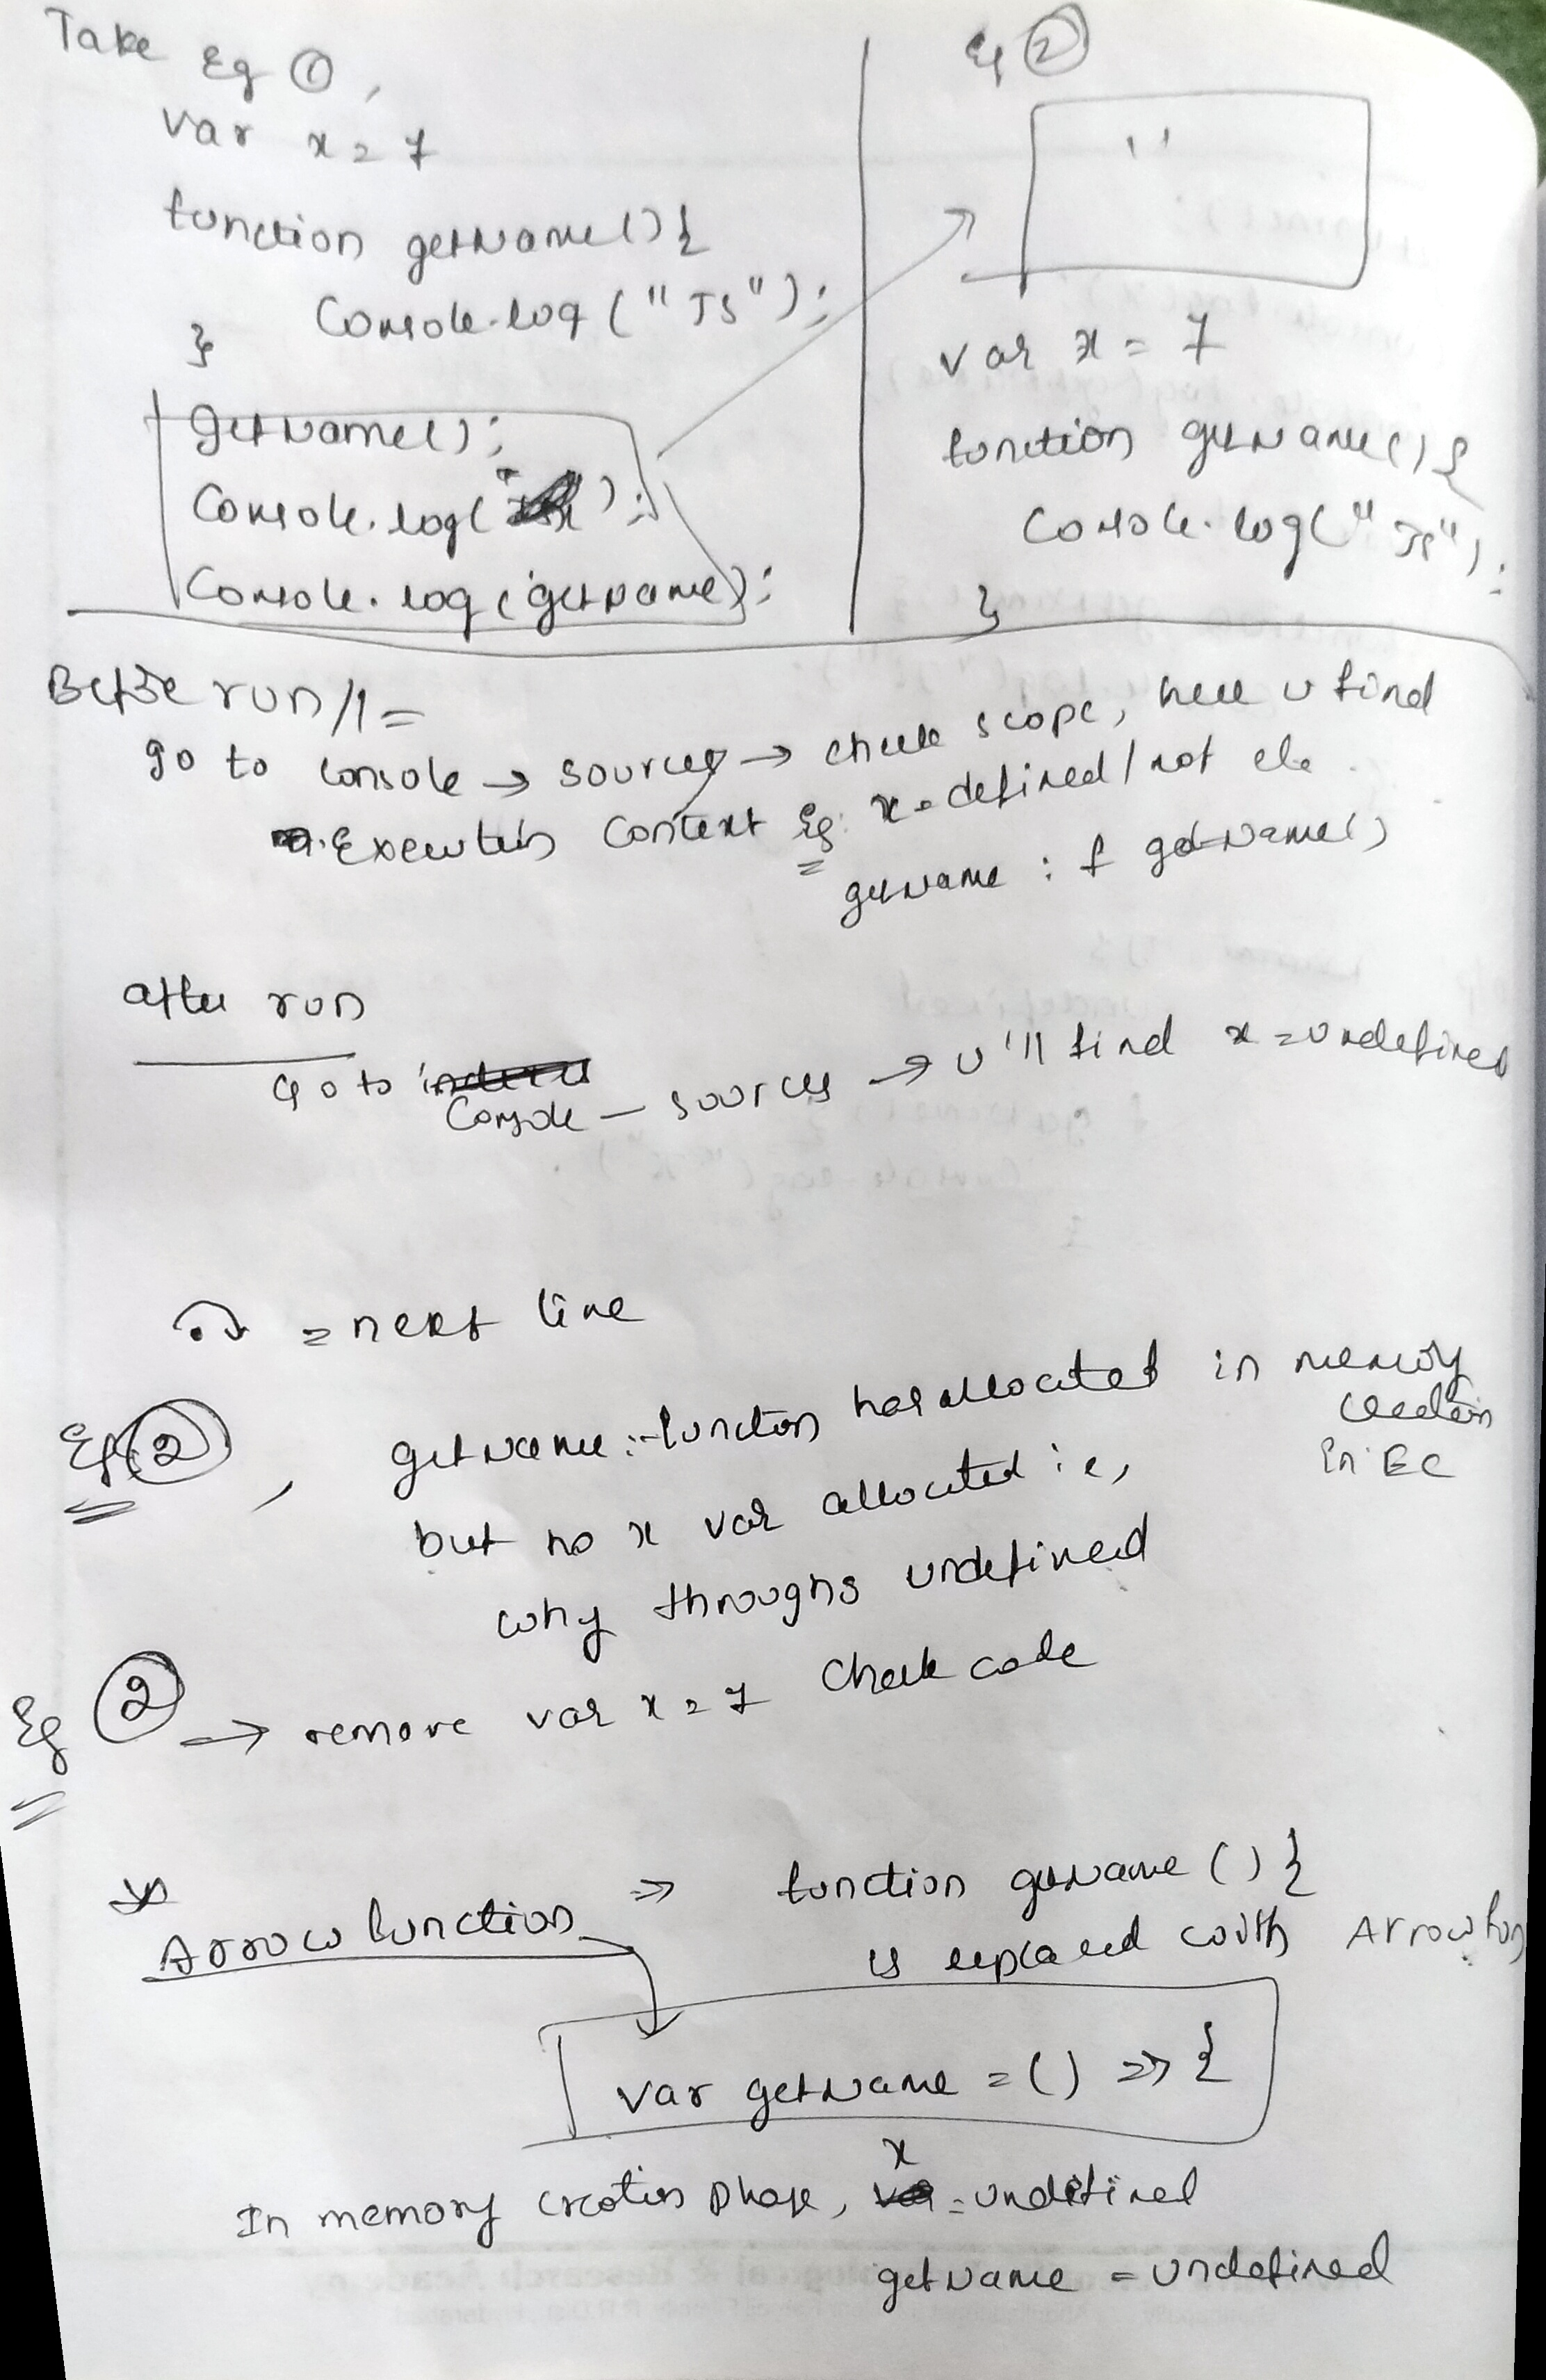 Take Eg ①,
var x = 7
function getName() {
Console.log ("JS");
}
getName();
Console.log( x );
Console.log (getName);
Eg ②
" "
var x = 7
function getName() {
Console.log("JS");
}
Before run //=
go to console → sources → check scope, here u find
Execution Context Eg: x = defined / not ele.
getName : f getName()
after run
Go to Console — sources → u'll find x = undefined
= next line
Eg ②, getName :- function has allocated in memory creation in EC
but no x var allocated i.e,
why throughs undefined
Eg ② → remove var x = 7 Check code
* Arrow function ⇒ function getName () {
is replaced with Arrow fun
var getName = () => {
In memory creation phase, x = undefined
getName = undefined